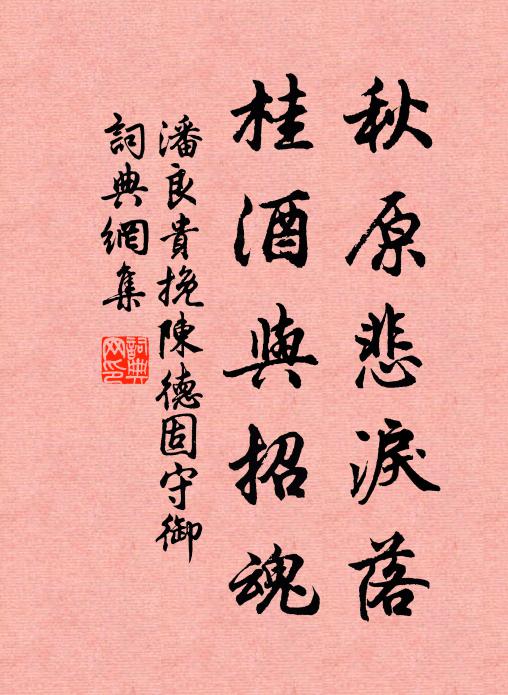 秋原悲淚落
桂酒與招魂
潘良貴挽陳德固守御
詞典網集
詞典網印